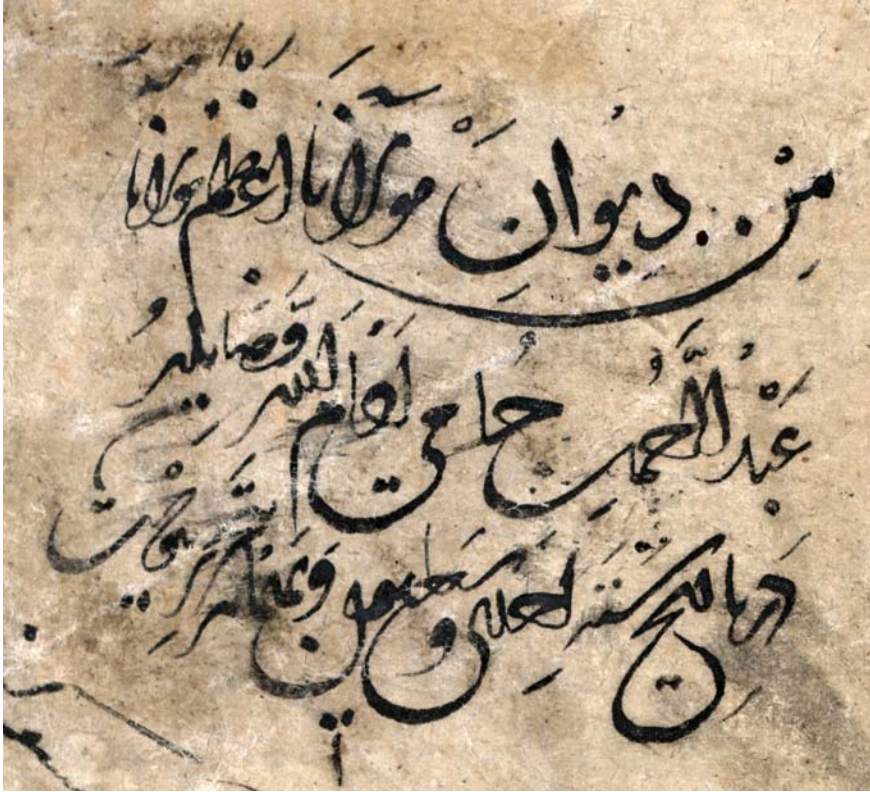 مِنْ ديوَان مولانا اعظم مولانا
عَبْدُ الرَّحمنِ جامي ادام الله فضايله
در تاريخ سنه احدى و سبعين وثمانمايه